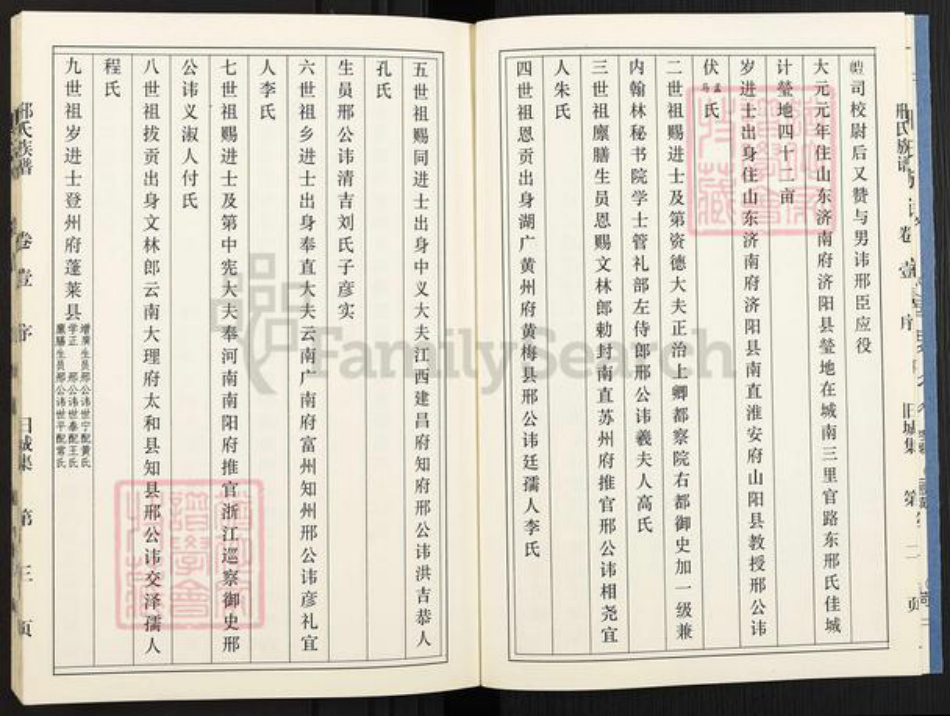 司校尉后又赞与男讳邢臣应役
大元元年住山东济南府济阳县莹地在城南三里官路东邢氏佳城
计莹地四十二亩
岁进士出身住山东济南府济阳县南直淮安府山阳县教授邢公讳
伏孟马氏
二世祖赐进士及第资德大夫正治上卿都察院右都御史加一级兼
内翰林秘书院学士管礼部左侍郎邢公讳羲夫人高氏
三世祖廪膳生员恩赐文林郎勅封南直苏州府推官邢公讳相尧宜
人朱氏
四世祖恩贡出身湖广黄州府黄梅县邢公讳廷孺人李氏
邢氏族谱 卷 壹 序 旧城集 第 二 页
五世祖赐同进士出身中义大夫江西建昌府知府邢公讳洪吉恭人
孔氏
生员邢公讳清吉刘氏子彦实
六世祖乡进士出身奉直大夫云南广南府富州知州邢公讳彦礼宜
人李氏
七世祖赐进士及第中宪大夫奉河南南阳府推官浙江巡察御史邢
公讳义淑人付氏
八世祖拔贡出身文林郎云南大理府太和县知县邢公讳交泽孺人
程氏
九世祖岁进士登州府蓬莱县
增廣生员邢公讳世宁配黄氏
学正 邢公讳世泰配王氏
廪膳生员邢公讳世平配常氏
邢氏族谱 卷 壹 序 旧城集 第 三 页
FamilySearch